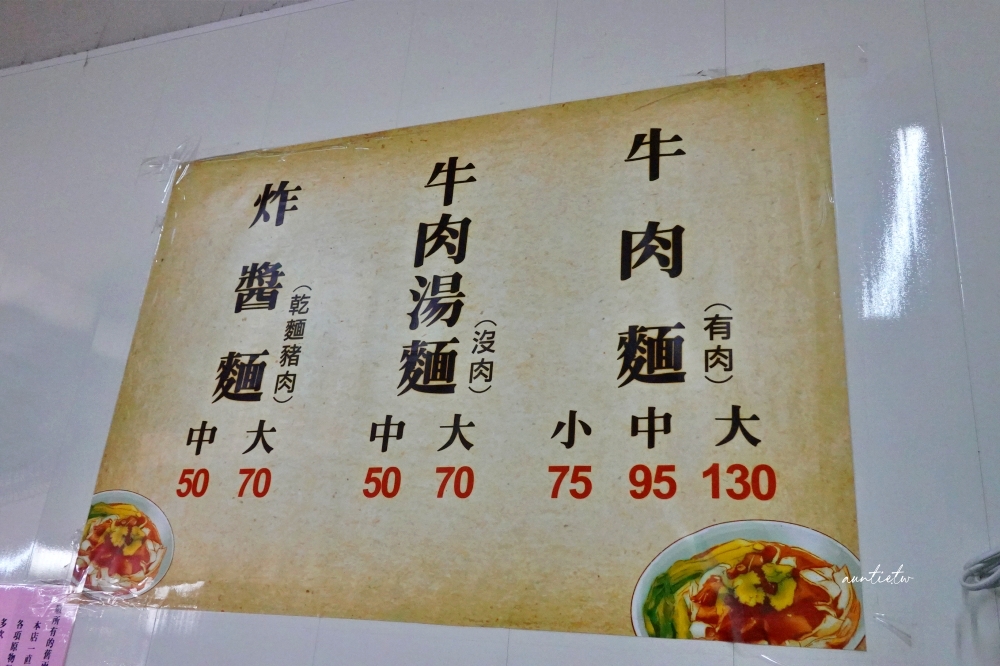 牛肉麵
(有肉)
小 中 大
75 95 130
牛肉湯麵
(沒肉)
中 大
50 70
炸醬麵
(乾麵豬肉)
中 大
50 70
auntietw
本店一直
各項原物